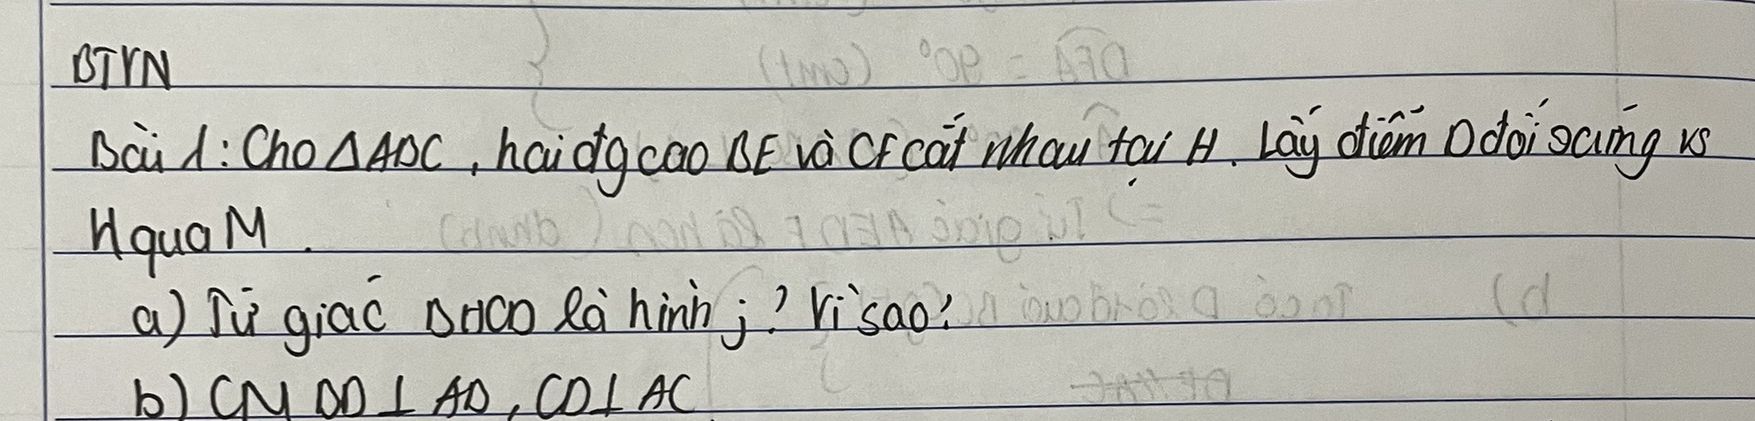 BTVN
Bài 1: Cho ΔABC, hai đg cao BE và CF cắt nhau tại H. Lấy điểm D đối xứng vs
H qua M.
a) Tứ giác BHCD là hình j? Vì sao?
b) CM BD ⊥ AB, CD ⊥ AC